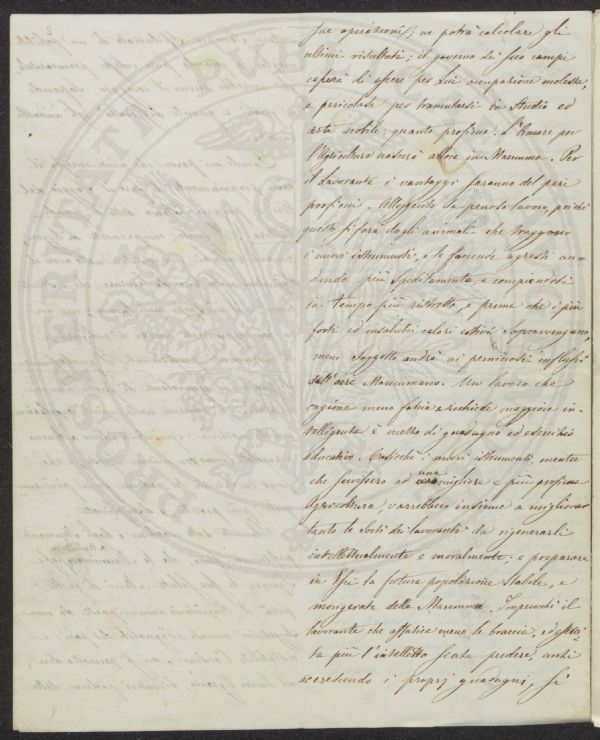 sue operazioni, ne potrà calcolare gli
ultimi risultati; il governo dei suoi campi
cesserà di essere per lui occupazione molesta,
e pericolosa per tramutarsi in Studio ed
arte nobile, quanto proficua. L'Amore per
l'Agricoltura nascerà allora in Maremma. Per
il Lavorante i vantaggi saranno del pari
proficui. Alleggerito la penoso lavoro, poichè
questo si farà dagli animali che traggono
i nuovi istrumenti, e le faccende agresti an-
dando più speditamente e compiendosi
in tempo più ristretto, e prima che i più
forti ed insalubri calori estivi sopravvengano,
meno soggetto andrà ai perniciosi influssi
dell'aere Maremmano. Un lavoro che
cagiona meno fatica e richiede maggiore in-
telligenza è molto di guadagno ed esercizio
educativo. Cosicchè i nuovi istrumenti, mentre
che servissero ad una migliore e più proficua
Agricoltura, varrebbero insieme a migliorar
tanto le sorti dei lavoranti da rigenerarli
intellettualmente e moralmente; e preparare
in Essi la futura popolazione stabile, e
morigerata della Maremma. Imperocchè il
lavorante che affatica meno le braccia, ed eserci-
ta più l'intelletto senza perdere, anzi
accrescendo i proprj guadagni, si